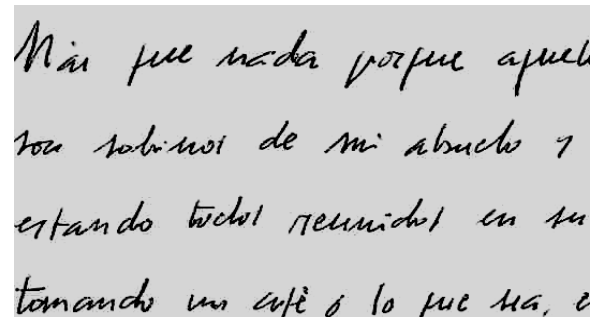 Más que nada porque aquel
son sobrinos de mi abuelo y
estando todos reunidos en su
tomando un café ó lo que sea,